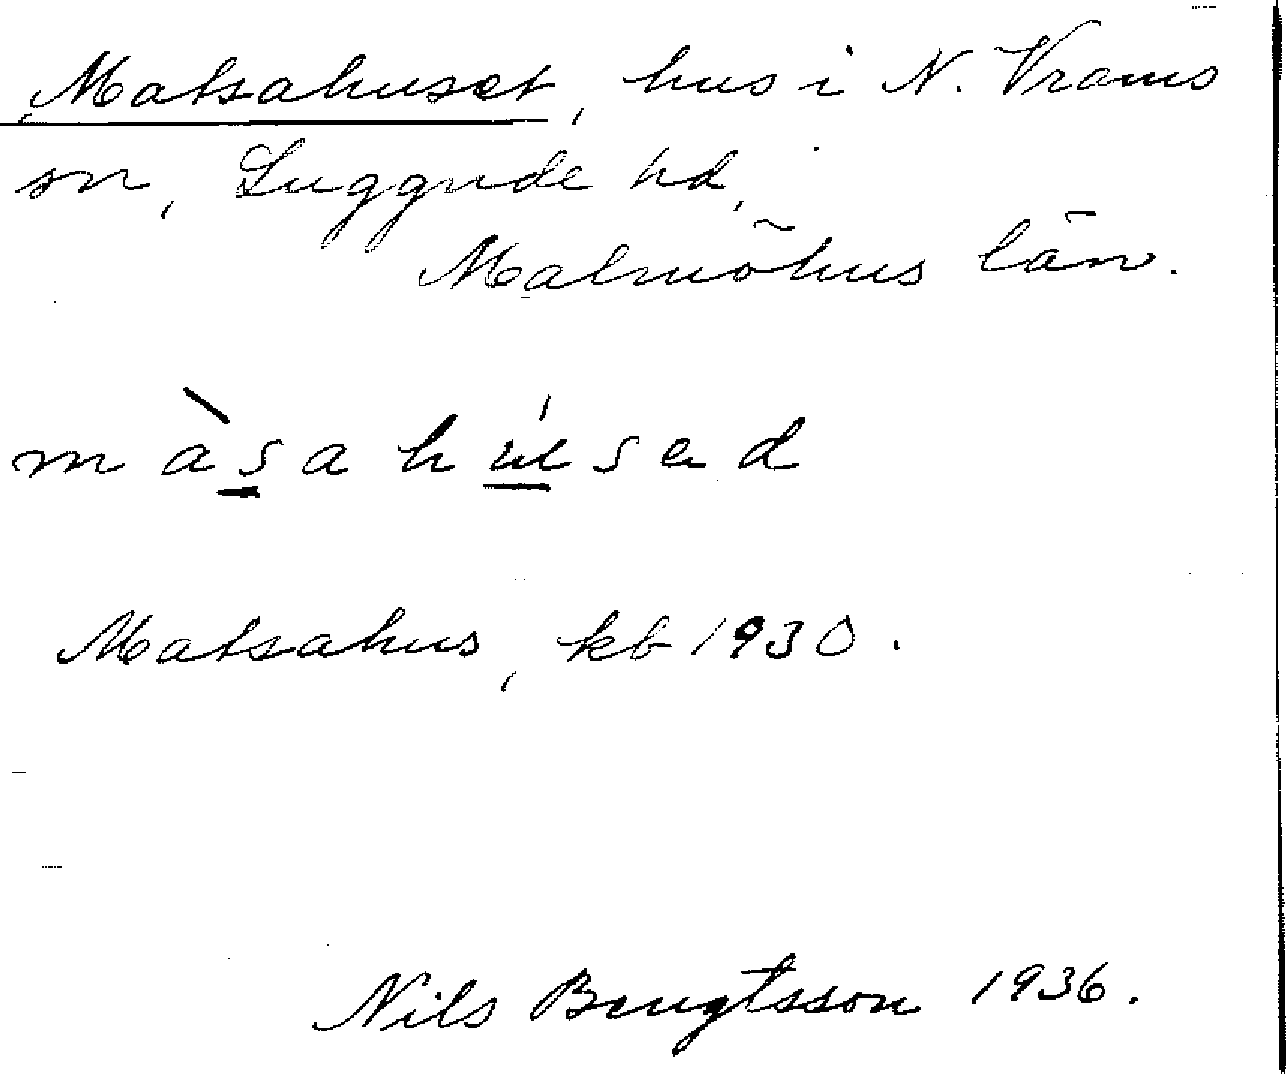 Matsahuset, hus i N. Vrams
sn, Luggude hd,
Malmöhus län.
màsahúsad
Matsahus, kb 1930.
Nils Bengtsson 1936.